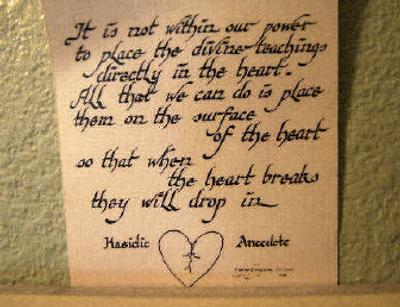 It is not within our power
to place the divine teachings
directly in the heart.
All that we can do is place
them on the surface
of the heart
so that when
the heart breaks
they will drop in
Hasidic Anecdote